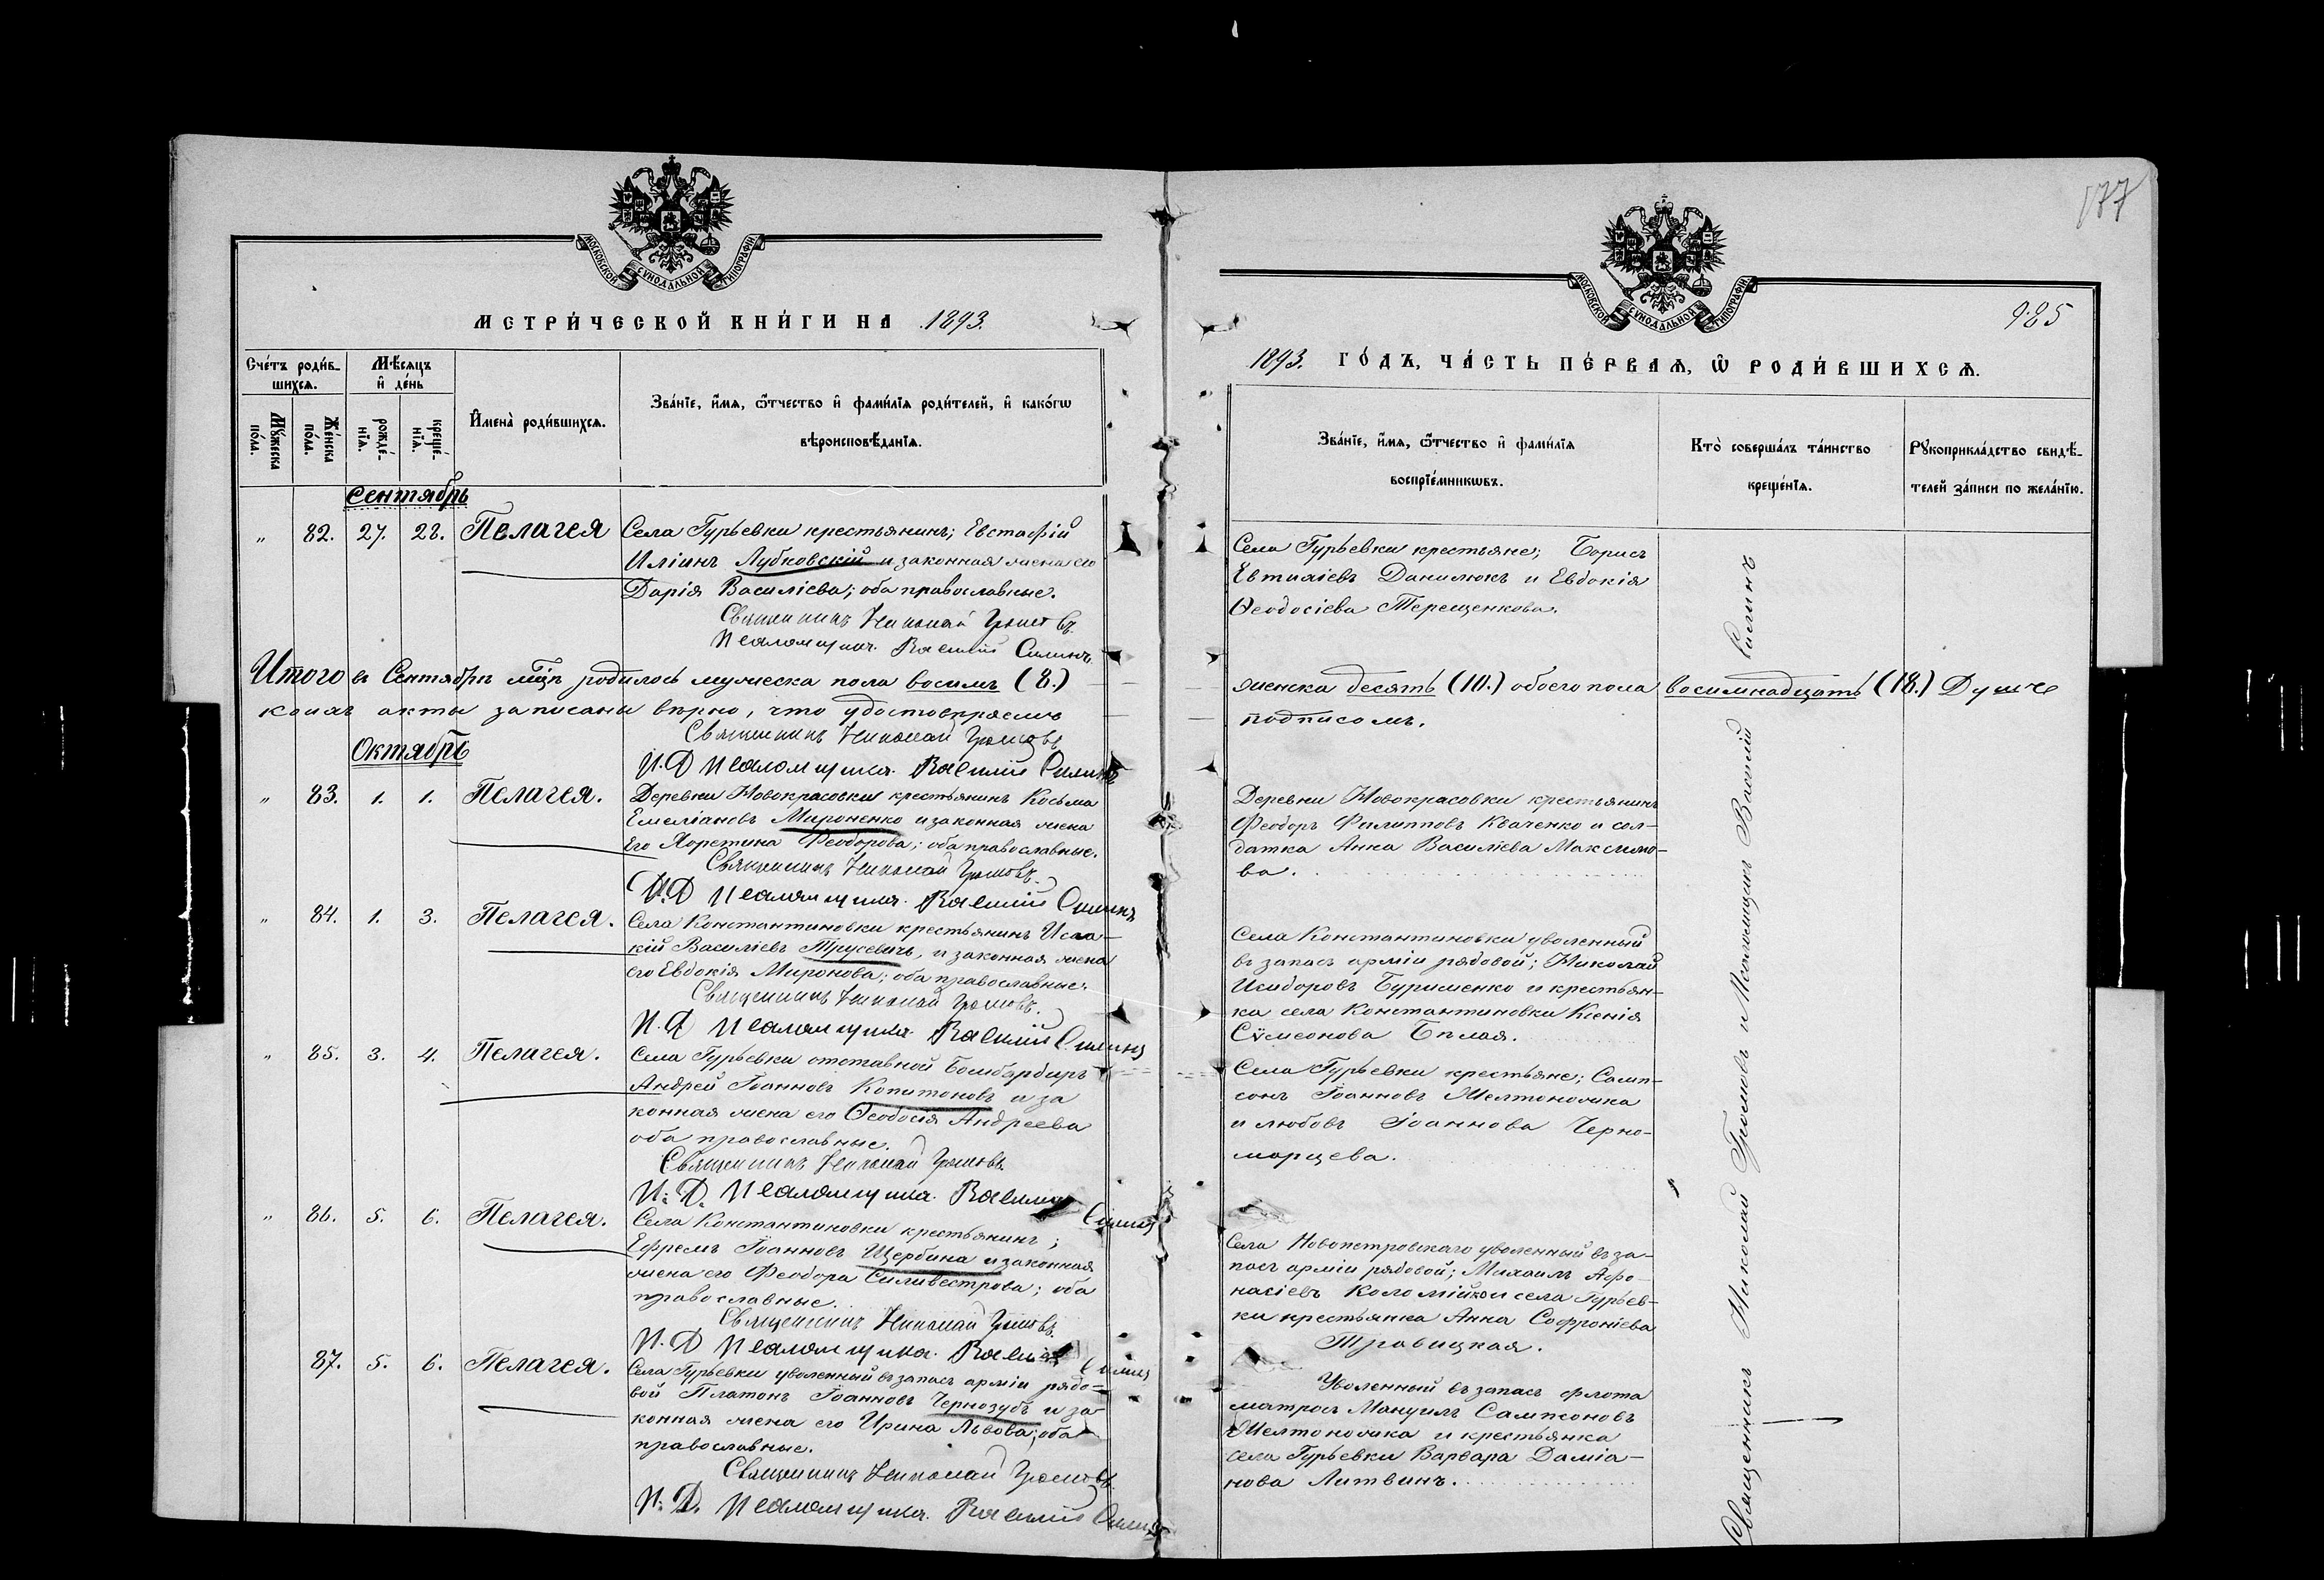 177
МОСКОВСКОЙ СѴНОДАЛЬНОЙ ТИПОГРАФІИ
МЕТРИ́ЧЕСКОЙ КНИ́ГИ НА 1893.
Сче́тъ роди́в-
шихся.
Мѣ́сяцъ
и҆ де́нь
Мꙋ́жеска
по́ла.
Же́нска
по́ла.
рожде́-
нїѧ.
креще́-
нїѧ.
И҆мена̀ роди́вшихсѧ.
Зва́нїе, и҆́мѧ, ѻ҆́тчество и҆ фами́лїѧ роди́телей, и҆ како́гѡ
вѣроисповѣ́данїѧ.
Сентябрь
„ 82. 27. 28. Пелагея Села Гурьевки крестьянинъ; Евстафій
Иліинъ Лубковскій и законная жена его
Дарія Василіева; оба православные.
Священникъ Николай Громовъ.
Псаломщикъ Василій Силинъ.
Итого въ Сентябрѣ мцѣ родилось мужеска пола восимъ (8.)
коихъ акты записаны вѣрно, что удостовѣряемъ
Священникъ Николай Громовъ
И. Д. Псаломщика Василій Силинъ
Октябрь
„ 83. 1. 1. Пелагея. Деревни Новокрасовки крестьянинъ Косьма
Емеліановъ Мироненко и законная жена
его Хоретина Феодорова; оба православные.
Священникъ Николай Громовъ.
И. Д. Псаломщика Василій Силинъ
„ 84. 1. 3. Пелагея. Села Константиновки крестьянинъ Иса-
кій Василіевъ Трусевичъ, и законная жена
его Евдокія Миронова; оба православные.
Священникъ Николай Громовъ.
И. Д. Псаломщика Василій Силинъ
„ 85. 3. 4. Пелагея. Села Гурьевки отставной Бомбардиръ
Андрей Іоанновъ Копитоновъ и за
конная жена его Ѳеодосія Андреева
оба православные.
Священникъ Николай Громовъ.
И. Д. Псаломщика Василій Силинъ
„ 86. 5. 6. Пелагея. Села Константиновки крестьянинъ;
Ефремъ Іоанновъ Щербина и законная
жена его Феодора Силивестрова; оба
православные.
Священникъ Николай Громовъ.
И. Д. Псаломщика Василій Силинъ
87. 5. 6. Пелагея. Села Гурьевки уволенный въ запасъ арміи рядо-
вой Платонъ Іоанновъ Чернозубъ и за-
конная жена его Ирина Львова; оба
православные.
Священникъ Николай Громовъ
И. Д. Псаломщика Василій Силинъ
МОСКОВСКОЙ СѴНОДАЛЬНОЙ ТИПОГРАФІИ
985
1893. ГО́ДЪ, ЧА́СТЬ ПЕ́РВАѦ, Ѡ҆ РОДИ́ВШИХСѦ.
Зва́нїе, и҆́мѧ, ѻ҆́тчество и҆ фами́лїѧ
воспрїе́мникѡвъ.
Кто̀ соверша́лъ та́инство
креще́нїѧ.
Рꙋкоприкла́дство свидѣ́-
телей за́писи по жела́нїю.
Села Гурьевки крестьяне; Борисъ
Евтихіевъ Данилюкъ и Евдокія
Ѳеодосіева Терещенкова.
женска десять (10.) обоего пола восимнадцать (18.) Душъ
подписомъ.
Деревни Новокрасовки крестьянинъ
Феодоръ Филипповъ Кваченко и сол-
датка Анна Василіева Максимо-
ва.
Села Константиновки уволенный
въ запасъ арміи рядовой; Николай
Исидоровъ Буряменко и крестьян-
ка села Константиновки Ксенія
Сѵмеонова Бѣлая.
Села Гурьевки крестьяне; Самп-
сонъ Іоанновъ Желтоножка
и любовь Іоаннова Черно-
морцева.
Села Новопетровскаго уволенный въ за-
пасъ арміи рядовой; Михаилъ Афо-
насіевъ Коломійко и села Гурьев-
ки крестьянка Анна Софроніева
Травицкая.
Уволенный въ запасъ флота
матросъ Мануилъ Сампсоновъ
Желтоножка и крестьянка
села Гурьевки Варвара Даміа-
нова Литвинъ.
Священникъ Николай Громовъ и Псаломщикъ Василій Силинъ